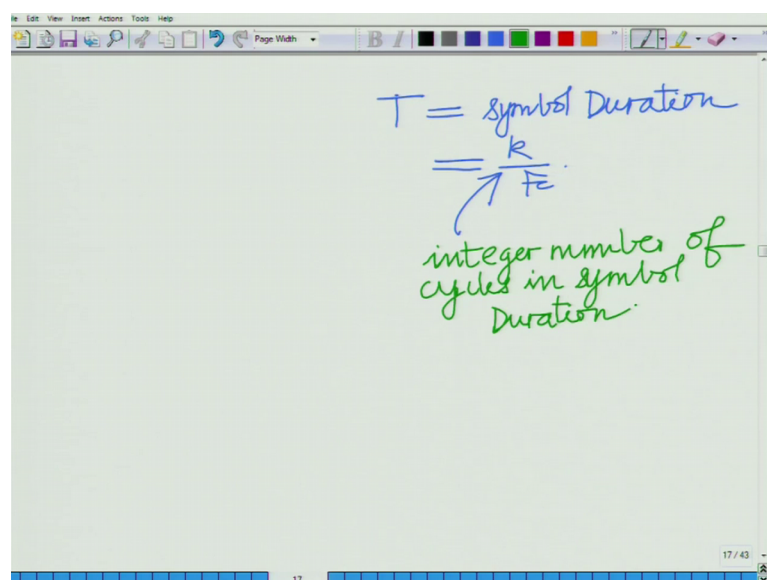 Edit View Insert Actions Tools Help
Page Width
B I
T = symbol Duration
= k / Fc .
integer number of
cycles in symbol
Duration.
17 / 43
17